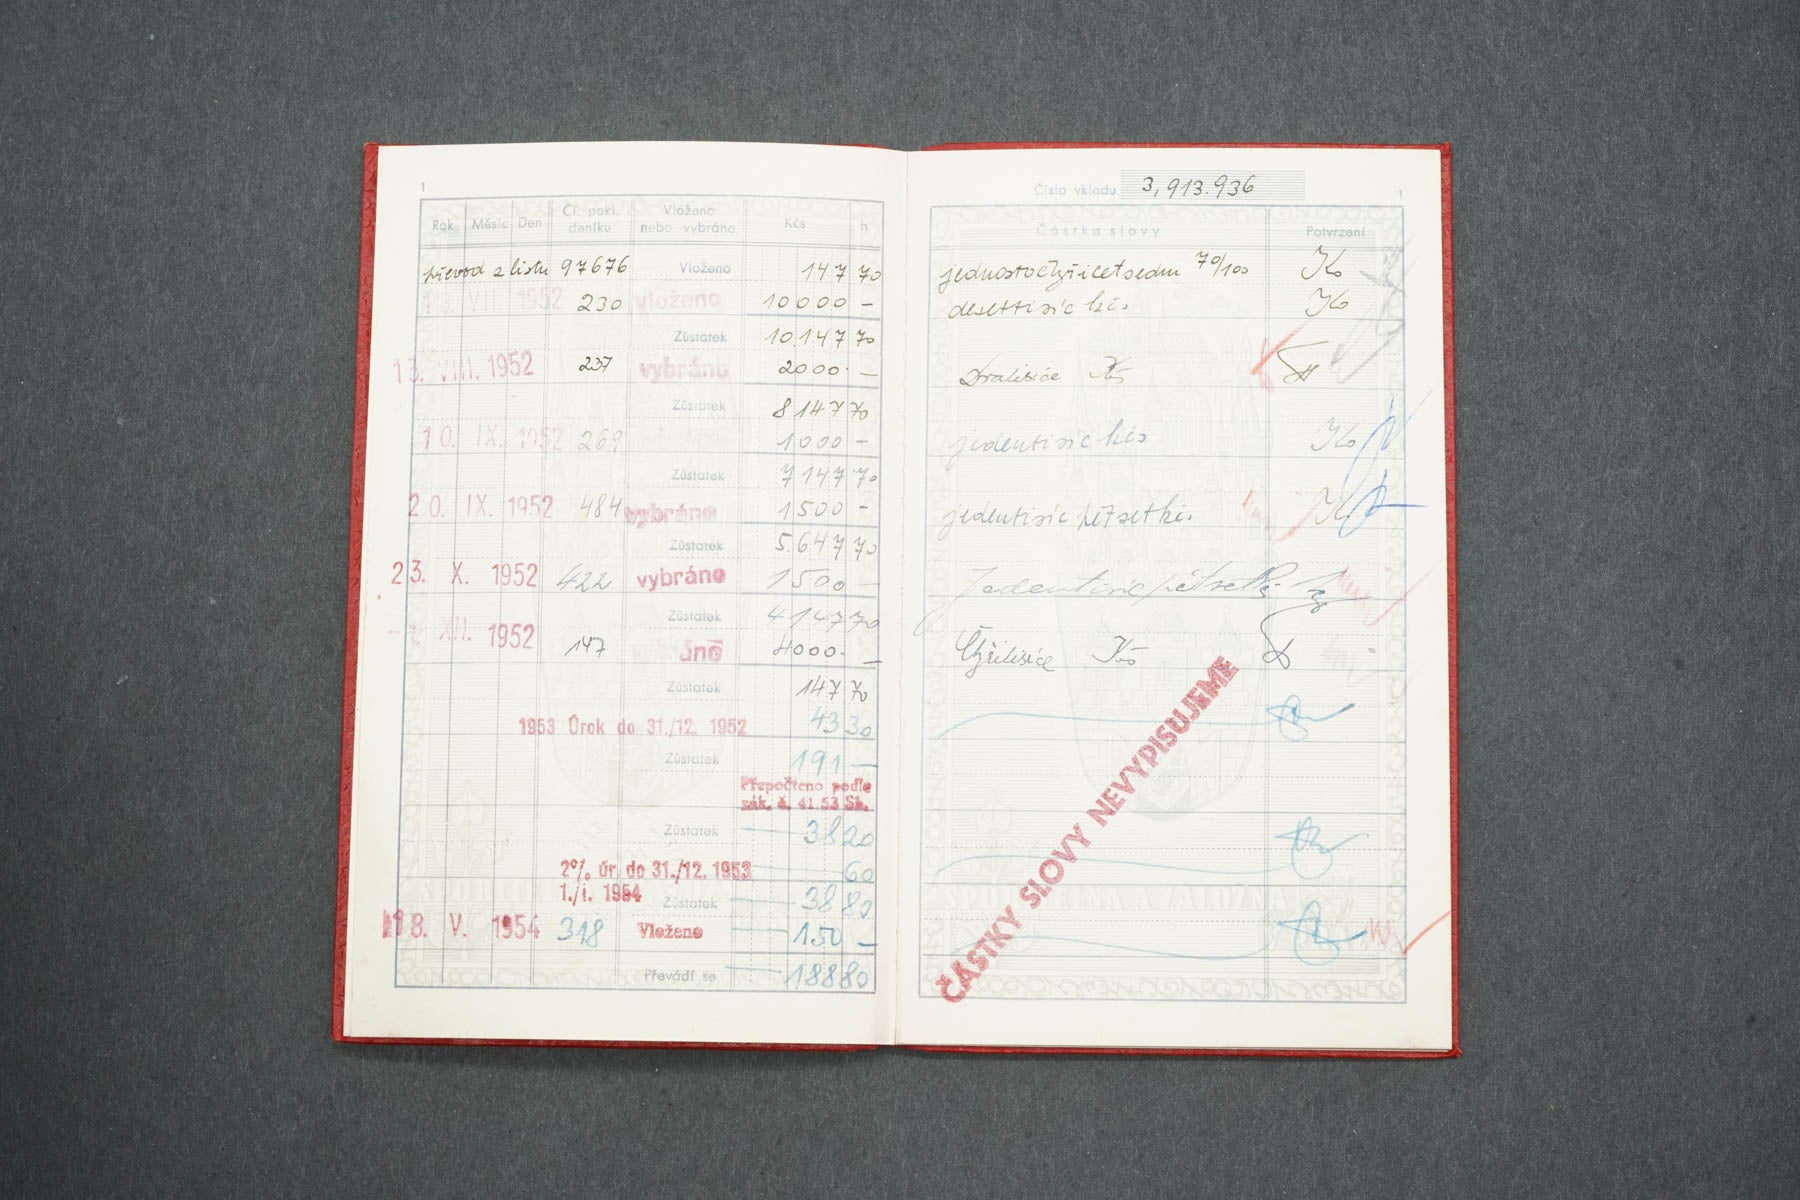 1
Rok Měsíc Den Čl. pokl. deníku Vloženo nebo vybráno Kčs h
převod z listu 97676 Vloženo 147 70
13. VII. 1952 230 vloženo 10000 —
Zůstatek 10.147 70
13. VIII. 1952 237 vybráno 2000 —
Zůstatek 8147 70
10. IX. 1952 269 1000 —
Zůstatek 7147 70
20. IX. 1952 484 vybráno 1500 —
Zůstatek 5.647 70
23. X. 1952 422 vybráno 1500 —
Zůstatek 4147 70
XII. 1952 147 vybráno 4000 —
Zůstatek 147 70
1953 Úrok do 31./12. 1952 43 30
Zůstatek 191 —
Přepočteno podle
zák. č. 41.53 Sb.
Zůstatek 38 20
2% úr. do 31./12. 1953 60
1./I. 1954 Zůstatek 38 80
18. V. 1954 318 Vloženo 150 —
Převádí se 188 80
Číslo vkladu 3,913.936
1
Částka slovy Potvrzení
jednostočtyřicetsedm 70/100 Ko
desettisíc kčs Ko
Dvatisíce Kčs
jedentisíc kčs Ko
jedentisíc pětset kčs Ko
Jedentisíc pětset
Čtyřitisíce Kčs
ČÁSTKY SLOVY NEVYPISUJEME